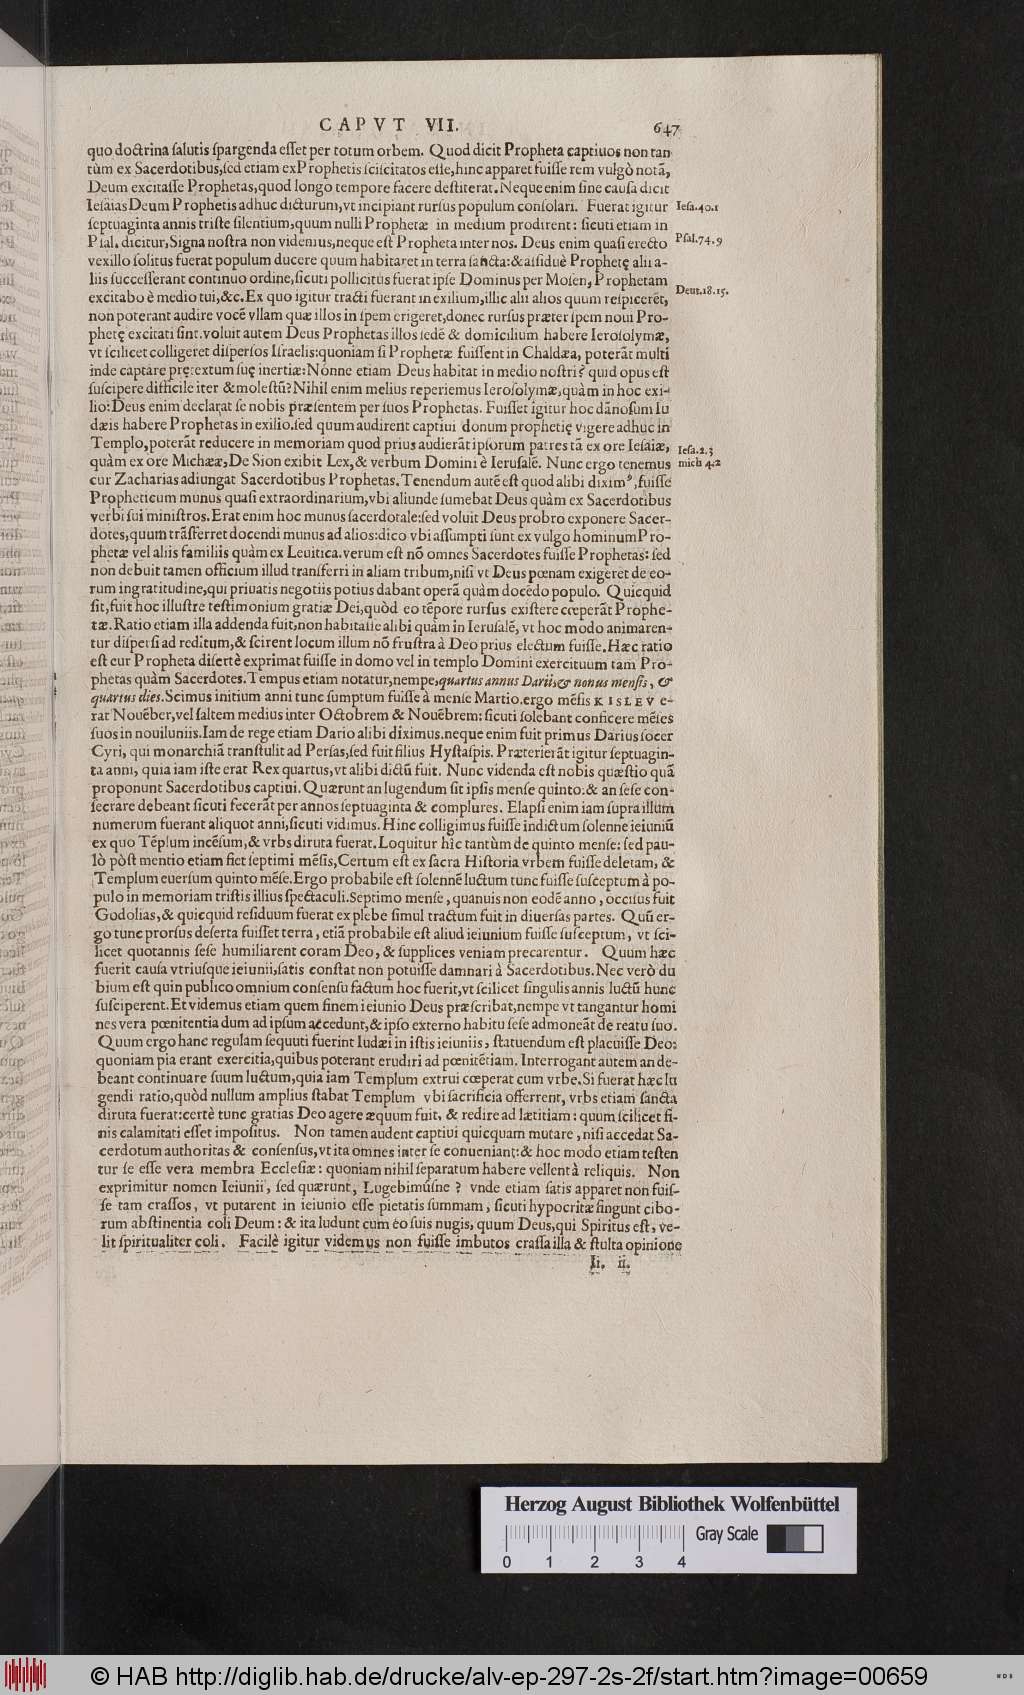 CAPVT VII. 647
quo doctrina ſalutis ſpargenda eſſet per totum orbem. Quod dicit Propheta captiuos non tan
tùm ex Sacerdotibus,ſed etiam ex Prophetis ſciſcitatos eſſe,hinc apparet fuiſſe rem vulgò notã,
Deum excitaſſe Prophetas,quod longo tempore facere deſtiterat.Neque enim ſine cauſa dicit
Ieſaias Deum Prophetis adhuc dicturum,vt incipiant rurſus populum conſolari. Fuerat igitur
Ieſa.40.1
ſeptuaginta annis triſte ſilentium,quum nulli Prophetæ in medium prodirent: ſicuti etiam in
Pſal. dicitur,Signa noſtra non videmus,neque eſt Propheta inter nos. Deus enim quaſi erecto
Pſal.74.9
vexillo ſolitus fuerat populum ducere quum habitaret in terra ſancta:& aſſiduè Prophetę alii a-
liis ſucceſſerant continuo ordine,ſicuti pollicitus fuerat ipſe Dominus per Moſen, Prophetam
excitabo è medio tui,&c.Ex quo igitur tracti fuerant in exilium,illic alii alios quum reſpicerẽt,
Deut.18.15.
non poterant audire vocẽ vllam quæ illos in ſpem erigeret,donec rurſus præter ſpem noui Pro-
phetę excitati ſint.voluit autem Deus Prophetas illos ſedẽ & domicilium habere Ieroſolymæ,
vt ſcilicet colligeret diſperſos Iſraelis:quoniam ſi Prophetæ fuiſſent in Chaldæa, poterãt multi
inde captare prętextum ſuę inertiæ:Nonne etiam Deus habitat in medio noſtri? quid opus eſt
ſuſcipere difficile iter & moleſtũ?Nihil enim melius reperiemus Ieroſolymæ,quàm in hoc exi-
lio:Deus enim declarat ſe nobis præſentem per ſuos Prophetas. Fuiſſet igitur hoc dãnoſum Iu
dæis habere Prophetas in exilio.ſed quum audirent captiui donum prophetię vigere adhuc in
Templo,poterãt reducere in memoriam quod prius audierãt ipſorum patres tã ex ore Ieſaiæ,
Ieſa.2.3
quàm ex ore Michææ,De Sion exibit Lex,& verbum Domini è Ieruſalẽ. Nunc ergo tenemus
mich 4.2
cur Zacharias adiungat Sacerdotibus Prophetas.Tenendum autẽ eſt quod alibi diximꝰ,fuiſſe
Propheticum munus quaſi extraordinarium,vbi aliunde ſumebat Deus quàm ex Sacerdotibus
verbi ſui miniſtros.Erat enim hoc munus ſacerdotale:ſed voluit Deus probro exponere Sacer-
dotes,quum trãſferret docendi munus ad alios:dico vbi aſſumpti ſunt ex vulgo hominum Pro-
phetæ vel aliis familiis quàm ex Leuitica.verum eſt nõ omnes Sacerdotes fuiſſe Prophetas: ſed
non debuit tamen officium illud transferri in aliam tribum,niſi vt Deus pœnam exigeret de eo-
rum ingratitudine,qui priuatis negotiis potius dabant operã quàm docẽdo populo. Quicquid
ſit,fuit hoc illuſtre teſtimonium gratiæ Dei,quòd eo tẽpore rurſus exiſtere cœperãt Prophe-
tæ.Ratio etiam illa addenda fuit,non habitaſſe alibi quàm in Ieruſalẽ, vt hoc modo animaren-
tur diſperſi ad reditum,& ſcirent locum illum nõ fruſtra à Deo prius electum fuiſſe.Hæc ratio
eſt cur Propheta diſertè exprimat fuiſſe in domo vel in templo Domini exercituum tam Pro-
phetas quàm Sacerdotes.Tempus etiam notatur,nempe,quartus annus Darii,& nonus menſis, &
quartus dies.Scimus initium anni tunc ſumptum fuiſſe à menſe Martio.ergo mẽſis KISLEV e-
rat Nouẽber,vel ſaltem medius inter Octobrem & Nouẽbrem: ſicuti ſolebant conficere mẽſes
ſuos in nouiluniis.Iam de rege etiam Dario alibi diximus.neque enim fuit primus Darius ſocer
Cyri, qui monarchiã tranſtulit ad Perſas,ſed fuit filius Hyſtaſpis. Præterierãt igitur ſeptuagin-
ta anni, quia iam iſte erat Rex quartus,vt alibi dictũ fuit. Nunc videnda eſt nobis quæſtio quã
proponunt Sacerdotibus captiui. Quærunt an lugendum ſit ipſis menſe quinto:& an ſeſe con-
ſecrare debeant ſicuti fecerãt per annos ſeptuaginta & complures. Elapſi enim iam ſupra illum
numerum fuerant aliquot anni,ſicuti vidimus.Hinc colligimus fuiſſe indictum ſolenne ieiuniũ
ex quo Tẽplum incẽſum,& vrbs diruta fuerat.Loquitur hîc tantùm de quinto menſe: ſed pau-
lò pòſt mentio etiam fiet ſeptimi mẽſis,Certum eſt ex ſacra Hiſtoria vrbem fuiſſe deletam, &
Templum euerſum quinto mẽſe.Ergo probabile eſt ſolennẽ luctum tunc fuiſſe ſuſceptum à po-
pulo in memoriam triſtis illius ſpectaculi.Septimo menſe, quanuis non eodẽ anno, occiſus fuit
Godolias,& quicquid reſiduum fuerat ex plebe ſimul tractum fuit in diuerſas partes. Quũ er-
go tunc prorſus deſerta fuiſſet terra, etiã probabile eſt aliud ieiunium fuiſſe ſuſceptum, vt ſci-
licet quotannis ſeſe humiliarent coram Deo, & ſupplices veniam precarentur. Quum hæc
fuerit cauſa vtriuſque ieiunii,ſatis conſtat non potuiſſe damnari à Sacerdotibus.Nec verò du
bium eſt quin publico omnium conſenſu factum hoc fuerit,vt ſcilicet ſingulis annis luctũ hunc
ſuſciperent.Et videmus etiam quem finem ieiunio Deus præſcribat,nempe vt tangantur homi
nes vera pœnitentia dum ad ipſum accedunt,& ipſo externo habitu ſeſe admoneãt de reatu ſuo.
Quum ergo hanc regulam ſequuti fuerint Iudæi in iſtis ieiuniis, ſtatuendum eſt placuiſſe Deo:
quoniam pia erant exercitia,quibus poterant erudiri ad pœnitẽtiam.Interrogant autem an de-
beant continuare ſuum luctum,quia iam Templum extrui cœperat cum vrbe.Si fuerat hæc lu
gendi ratio,quòd nullum amplius ſtabat Templum vbi ſacrificia offerrent, vrbs etiam ſancta
diruta fuerat:certè tunc gratias Deo agere æquum fuit, & redire ad lætitiam: quum ſcilicet fi-
nis calamitati eſſet impoſitus. Non tamen audent captiui quicquam mutare, niſi accedat Sa-
cerdotum authoritas & conſenſus,vt ita omnes inter ſe conueniant:& hoc modo etiam teſten
tur ſe eſſe vera membra Eccleſiæ: quoniam nihil ſeparatum habere vellent à reliquis. Non
exprimitur nomen Ieiunii, ſed quærunt, Lugebimúſne? vnde etiam ſatis apparet non fuiſ-
ſe tam craſſos, vt putarent in ieiunio eſſe pietatis ſummam, ſicuti hypocritæ fingunt cibo-
rum abſtinentia coli Deum: & ita ludunt cum eo ſuis nugis, quum Deus,qui Spiritus eſt, ve-
lit ſpiritualiter coli. Facilè igitur videmus non fuiſſe imbutos craſſa illa & ſtulta opinione
Ii. ii.
Herzog August Bibliothek Wolfenbüttel
Gray Scale
0 1 2 3 4
© HAB http://diglib.hab.de/drucke/alv-ep-297-2s-2f/start.htm?image=00659